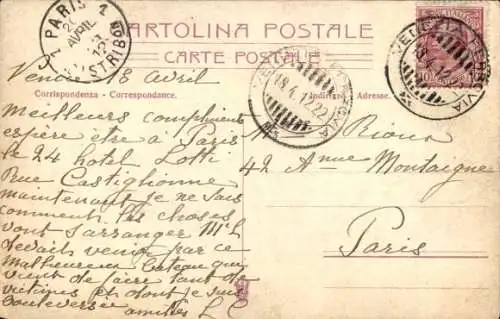 CARTOLINA POSTALE
CARTE POSTALE
PARIS
AVRIL
DISTRIB
VENEZIA FERROVIA
18.4.12.22
VENEZIA FERROVIA
10
Corrispondenza - Correspondance.
Indirizzo - Adresse.
Venise 18 avril
Meilleurs compliments
espère être à Paris
le 24 hotel Lotti
Rue Castiglionne
maintenant je ne sais
comment les choses
vont s'arranger Ml L
devait venir par ce
malheureux bateau qui
vient de faire tant de
victimes et dont je suis
bouleversée
amitiés L C
M Rioux
42 Avenue Montaigne
Paris